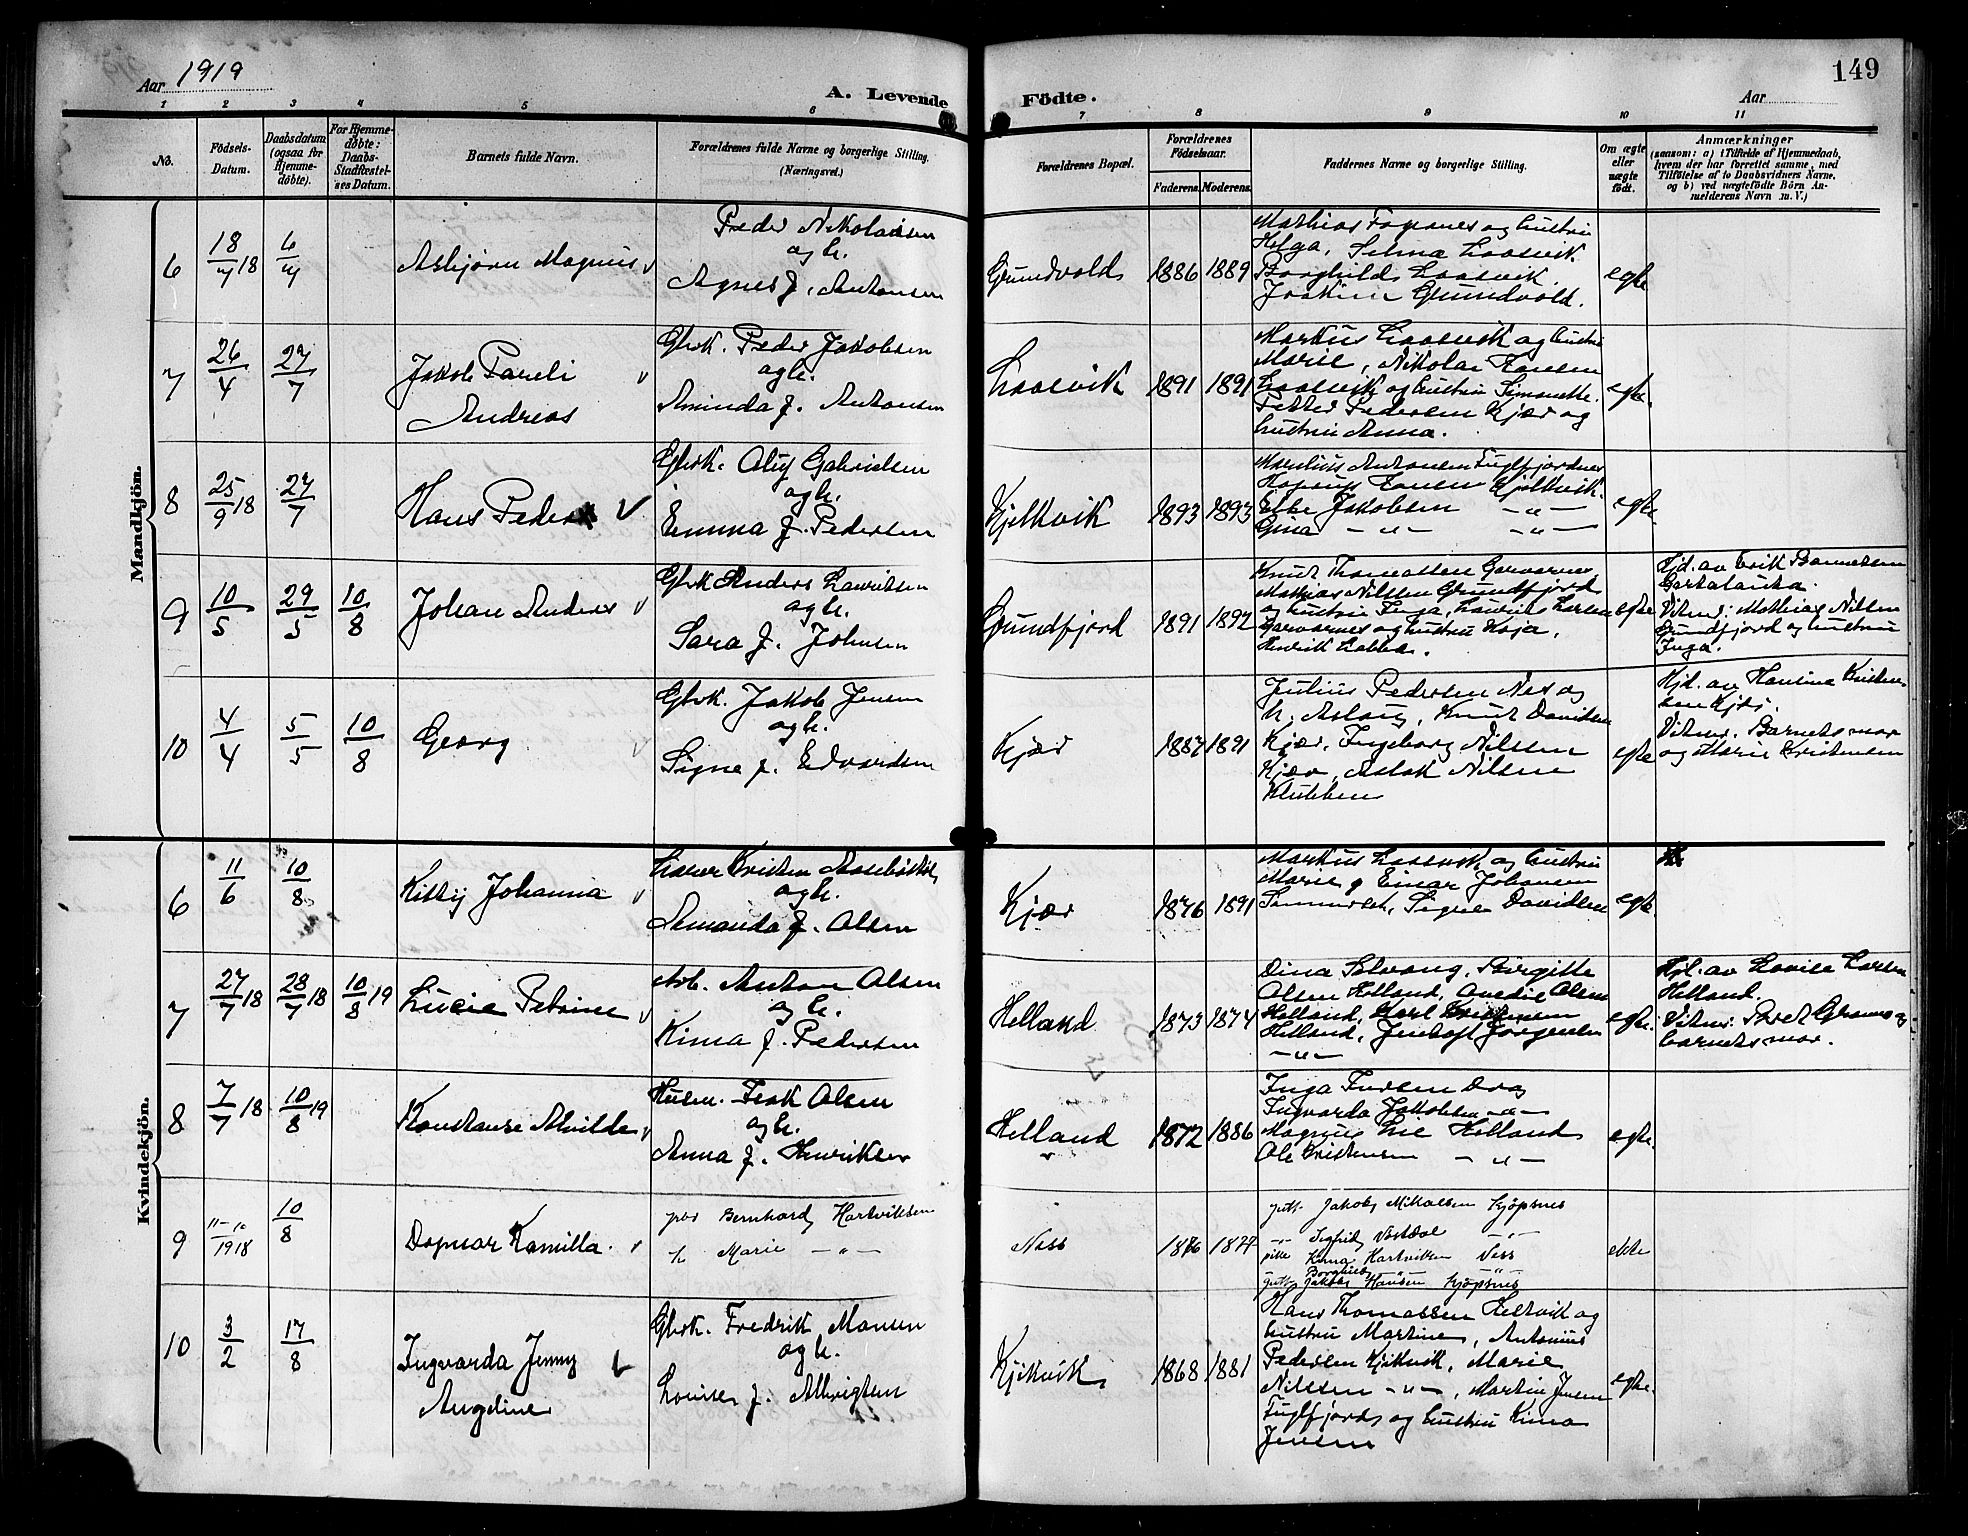 Aar 1919
A. Levende Födte.
149
Aar
1 2 3 4 5 6 7 8 9 10 11
No.
Födsels-Datum.
Daabsdatum (ogsaa for Hjemme-döbte).
For Hjemme-döbte: Daabs-Stadfæstel-ses Datum.
Barnets fulde Navn.
Forældrenes fulde Navne og borgerlige Stilling.
(Næringsvei.)
Forældrenes Bopæl.
Forældrenes Födselsaar.
Faderens. Moderens.
Faddernes Navne og borgerlige Stilling.
Om ægte eller uægte födt.
Anmærkninger
(saasom: a) i Tilfælde af Hjemmedaab,
hvem der har forrettet samme, med
Tilföielse af to Daabsvidners Navne,
og b) ved uægtefödte Börn An-
melderens Navn m. V.)
Mandkjön.
6
18/4 18
6/4
Asbjørn Magnus
Peder Nikolaisen
og h.
Agnes f. Antonsen
Grundvold
1886 1889
Mathias Foxanes og hustru
Helga, Selma Laasvik
Borghild Laasvik
Joakim Grundvold.
egte
7
26/4
27/7
Jakob Pareli
Andreas
Gbrk. Peder Jakobsen
og h.
Aminda f. Antonsen
Laasvik
1891 1891
Markus Laasvik og hustru
Marie, Nikolai Hansen
Laasvik og hustru Simonette.
Petter Pedersen Kjær og
hustru Anna.
egte.
8
25/9 18
27/7
Hans Peder
Gbrk. Oluf Gabrielsen
og h.
Emma f. Pedersen
Kjelkvik
1893 1893
Antonsen Fuglfjordnes
Hansen Kjelkvik.
Ebbe Jakobsen - " -
Gina - " - - " -
egte
9
10/5
29/5
10/8
Johan Anders
Gbrk Anders Lauritsen
og h.
Sara f. Johnsen
Grundfjord
1891 1892
Knut Thomassen Garvarnes
Mathias Nilsen Grundfjord
og hustru Inga, Laurits Larsen
Garvarnes og hustru Kaja,
Henrik Labba.
egte
Hjd. av Erik
Vitner: Mathias Nilsen
Grundfjord og hustru
Inga.
10
4/4
5/5
10/8
Georg
Gbrk. Jakob Jensen
og h.
Signe f. Edvardsen
Kjær
1887 1891
Julius Pedersen Nes og
h. Aslaug, Knut Davidsen
Kjær, Ingeborg Nilssen
Kjær, Aslak Nilsen
Klubben
egte
Hjd. av Hansine Kristen-
sen Kjær.
Vitner: Barnets mor
og Marie Kristensen
Kvindekjön.
6
11/6
10/8
Kitty Johanna
Kristen
og h.
Amanda f. Olsen
Kjær
1876 1891
Markus Laasvik og hustru
Marie, Einar Johansen
Signe Davidsen
egte.
7
27/7 18
28/7 18
10/8 19
Lucie Petrine
Arb. Anton Olsen
og h.
Kima f. Pedersen
Helland
1873 1874
Dina Solvang, Birgitte
Olsen Helland, Anedie Olsen
Helland, Karl Kristensen
Helland, Jentoft Jørgensen
- " -
egte.
Hjd. av Lovise Larsen
Helland.
Vitner: Beret Granes og
barnets mor.
8
7/7 18
10/8 19
Konstanse Alvilde
Husm. Isak Olsen
og h.
Anna f. Henriksen
Helland
1872 1886
Inga Iversen Drag
Ingvarda Jakobsen - " -
Magnus Lie Helland
Ole Kristensen - " -
egte.
9
11-10/1918
10/8
Dagmar Kamilla.
Bernhard Hartviksen
h. Marie - " -
Ness
1876 1877
Jakob Mikalsen Kjøpsnes
- " - Sigfrid - " -
pike Kima Hartviksen Ness
Borghild - " -
Jakob Hansen Kjöpsnes
ekte
10
3/2
17/8
Ingvarda Jenny
Angeline
Gbrk. Fredrik Monsen
og h.
Louise f. Albrigtsen
Kjikvik
1868 1881
Hans Thomassen Hestvik og
hustru Martine, Antonius
Pedersen Kjikvik, Marie
Nilssen - " - , Martin Jensen
Fuglfjord og hustru Kima
Jensen
egte.